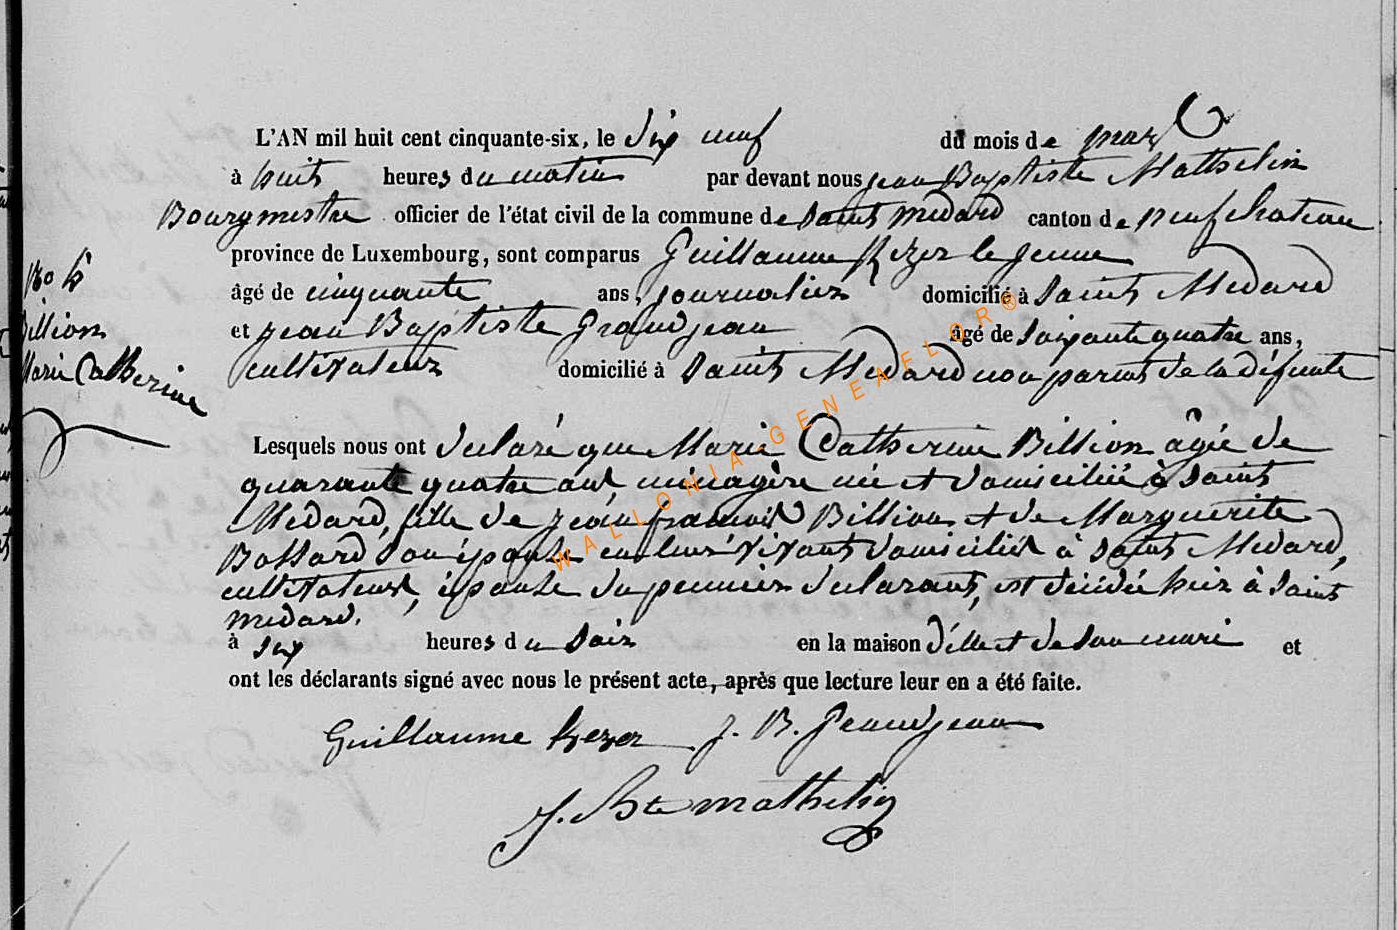 L'AN mil huit cent cinquante-six, le dix neuf du mois de mars
à huit heures du matin par devant nous jean Baptiste Mathelin
Bourgmestre officier de l'état civil de la commune de Saint medard canton de neufchateau
province de Luxembourg, sont comparus Guillaume Kezer le jeune
âgé de cinquante ans, journalier domicilié à Saint Medard
et jean Baptiste Grandjean âgé de soixante quatre ans,
cultivateur domicilié à Saint Medard non parent de la défunte
Billion
Marie Catherine
Lesquels nous ont declaré que Marie Catherine Billion âgée de
quarante quatre ans ménagère née et domiciliée à Saint
Medard, fille de jean françois Billion et de Marguerite
Bossard son épouse en leur vivant domiciliés à Saint Medard,
cultivateurs, épouse du premier declarant, est décédée hier à Saint
medard.
à six heures du soir en la maison d'elle et de son mari et
ont les déclarants signé avec nous le présent acte, après que lecture leur en a été faite.
Guillaume Kezer J. B. Grandjean
J. Bte mathelin
WALLONIA GENEAFLOR®